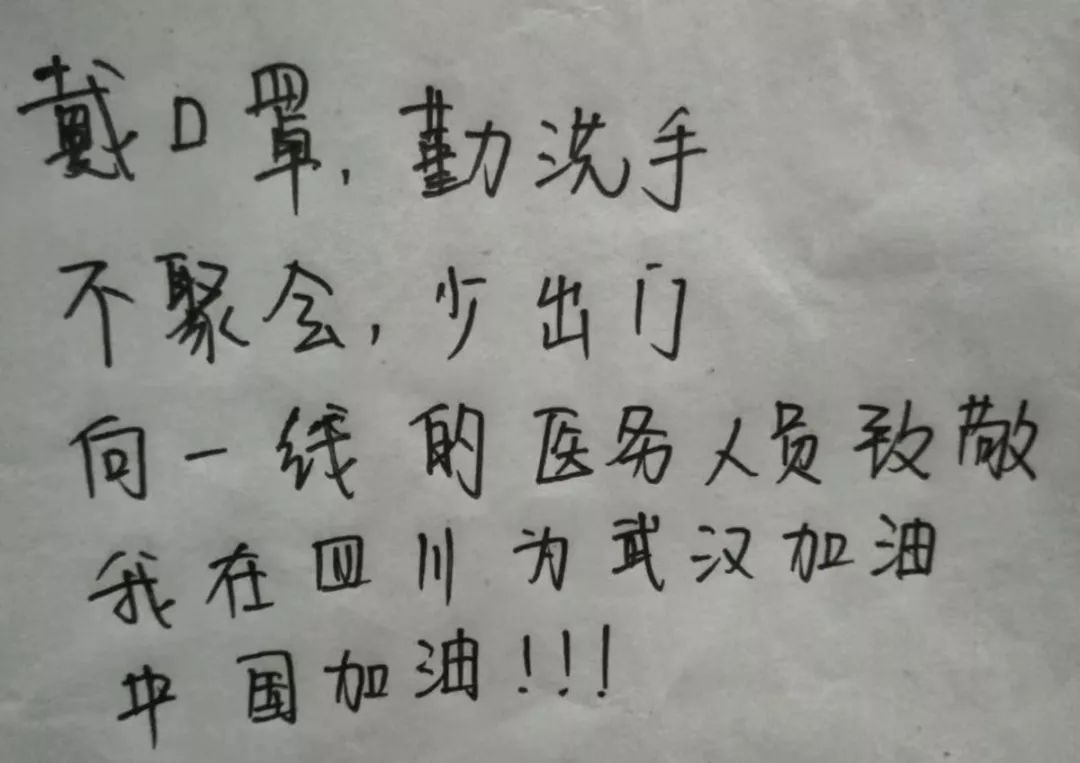 戴口罩，勤洗手
不聚会，少出门
向一线的医务人员致敬
我在四川为武汉加油
中国加油！！！